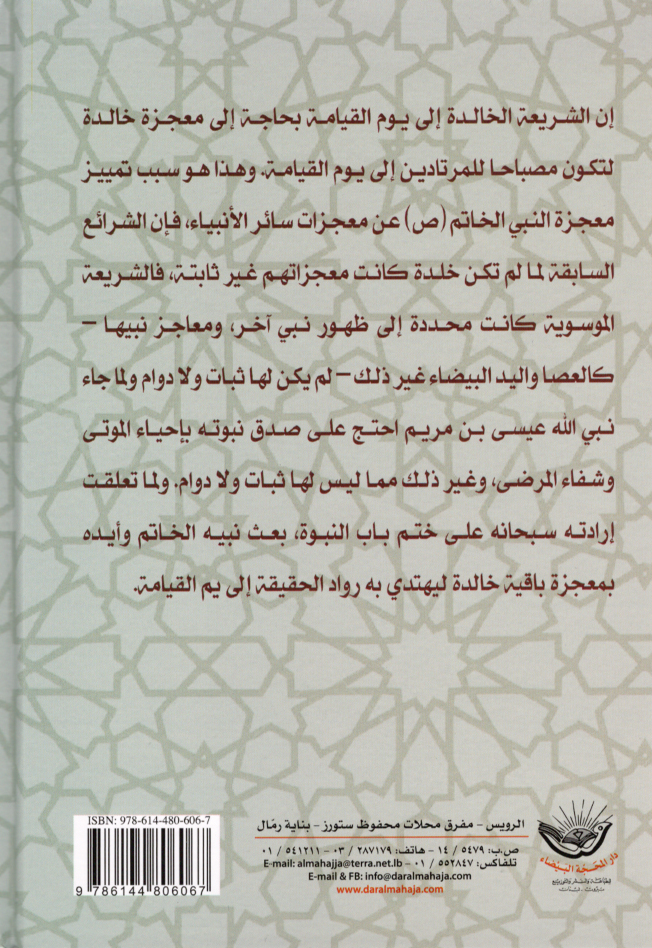 إن الشريعة الخالدة إلى يوم القيامة بحاجة إلى معجزة خالدة
لتكون مصباحا للمرتادين إلى يوم القيامة. وهذا هو سبب تمييز
معجزة النبي الخاتم (ص) عن معجزات سائر الأنبياء، فإن الشرائع
السابقة لما لم تكن خلدة كانت معجزاتهم غير ثابتة، فالشريعة
الموسوية كانت محددة إلى ظهور نبي آخر، ومعاجز نبيها –
كالعصا واليد البيضاء غير ذلك – لم يكن لها ثبات ولا دوام ولما جاء
نبي الله عيسى بن مريم احتج على صدق نبوته بإحياء الموتى
وشفاء المرضى، وغير ذلك مما ليس لها ثبات ولا دوام. ولما تعلقت
إرادته سبحانه على ختم باب النبوة، بعث نبيه الخاتم وأيده
بمعجزة باقية خالدة ليهتدي به رواد الحقيقة إلى يم القيامة.
ISBN: 978-614-480-606-7
9 786144 806067
الرويس - مفرق محلات محفوظ ستورز - بناية رمّال
ص.ب: ٥٤٧٩ / ١٤ - هاتف: ٢٨٧١٧٩ / ٠٣ - ٥٤١٢١١ / ٠١
تلفاكس: ٥٥٢٨٤٧ / ٠١ - E-mail: almahajja@terra.net.lb
E-mail & FB: info@daralmahaja.com
www.daralmahaja.com
دار المحجة البيضاء
للطباعة والنشر والتوزيع
بيروت - لبنان